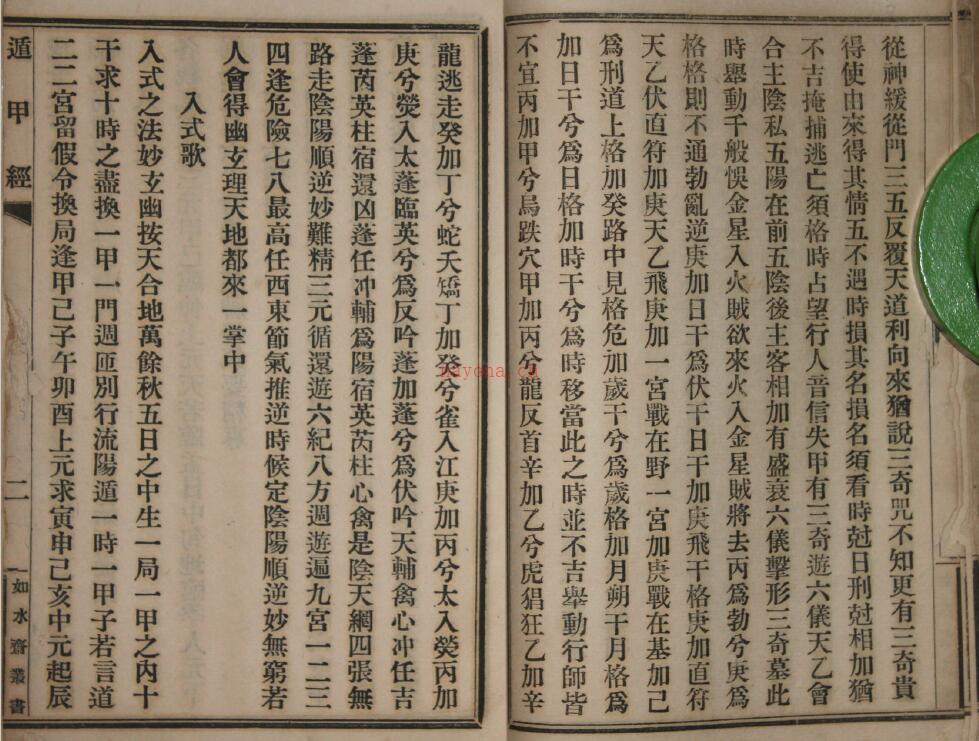 從神緩從門三五反覆天道利向來猶說三奇咒不知更有三奇貴
得使由來得其情五不遇時損其名損名須看時尅日刑尅相加猶
不吉掩捕逃亡須格時占望行人音信失甲有三奇遊六儀天乙會
合主陰私五陽在前五陰後主客相加有盛衰六儀擊形三奇墓此
時舉動千般悞金星入火賊欲來火入金星賊將去丙爲勃兮庚爲
格格則不通勃亂逆庚加日干爲伏干日干加庚飛干格庚加直符
天乙伏直符加庚天乙飛庚加一宮戰在野一宮加庚戰在基加己
爲刑道上格加癸路中見格危加歲干兮爲歲格加月朔干月格爲
加日干兮爲日格加時干兮爲時移當此之時並不吉舉動行師皆
不宜丙加甲兮鳥跌穴甲加丙兮龍反首辛加乙兮虎猖狂乙加辛
龍逃走癸加丁兮蛇夭矯丁加癸兮雀入江庚加丙兮太入熒丙加
庚兮熒入太蓬臨英兮爲反吟蓬加蓬兮爲伏吟天輔禽心冲任吉
蓬芮英柱宿還凶蓬任冲輔爲陽宿英芮柱心禽是陰天網四張無
路走陰陽順逆妙難精三元循還遊六紀八方週遊遍九宮一二三
四逢危險七八最高任西東節氣推逆時候定陰陽順逆妙無窮若
人會得幽玄理天地都來一掌中
入式歌
入式之法妙玄幽按天合地萬餘秋五日之中生一局一甲之內十
干求十時之盡換一甲一門週匝別行流陽遁一時一甲子若言道
二二宮留假令換局逢甲己子午卯酉上元求寅申己亥中元起辰
遁甲經
二
如水齋叢書
nayona.cn